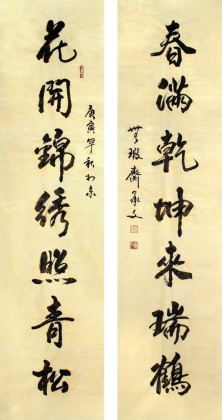 春滿乾坤來瑞鶴
花開錦綉照青松
庚寅早秋於京
無瑕齋承文